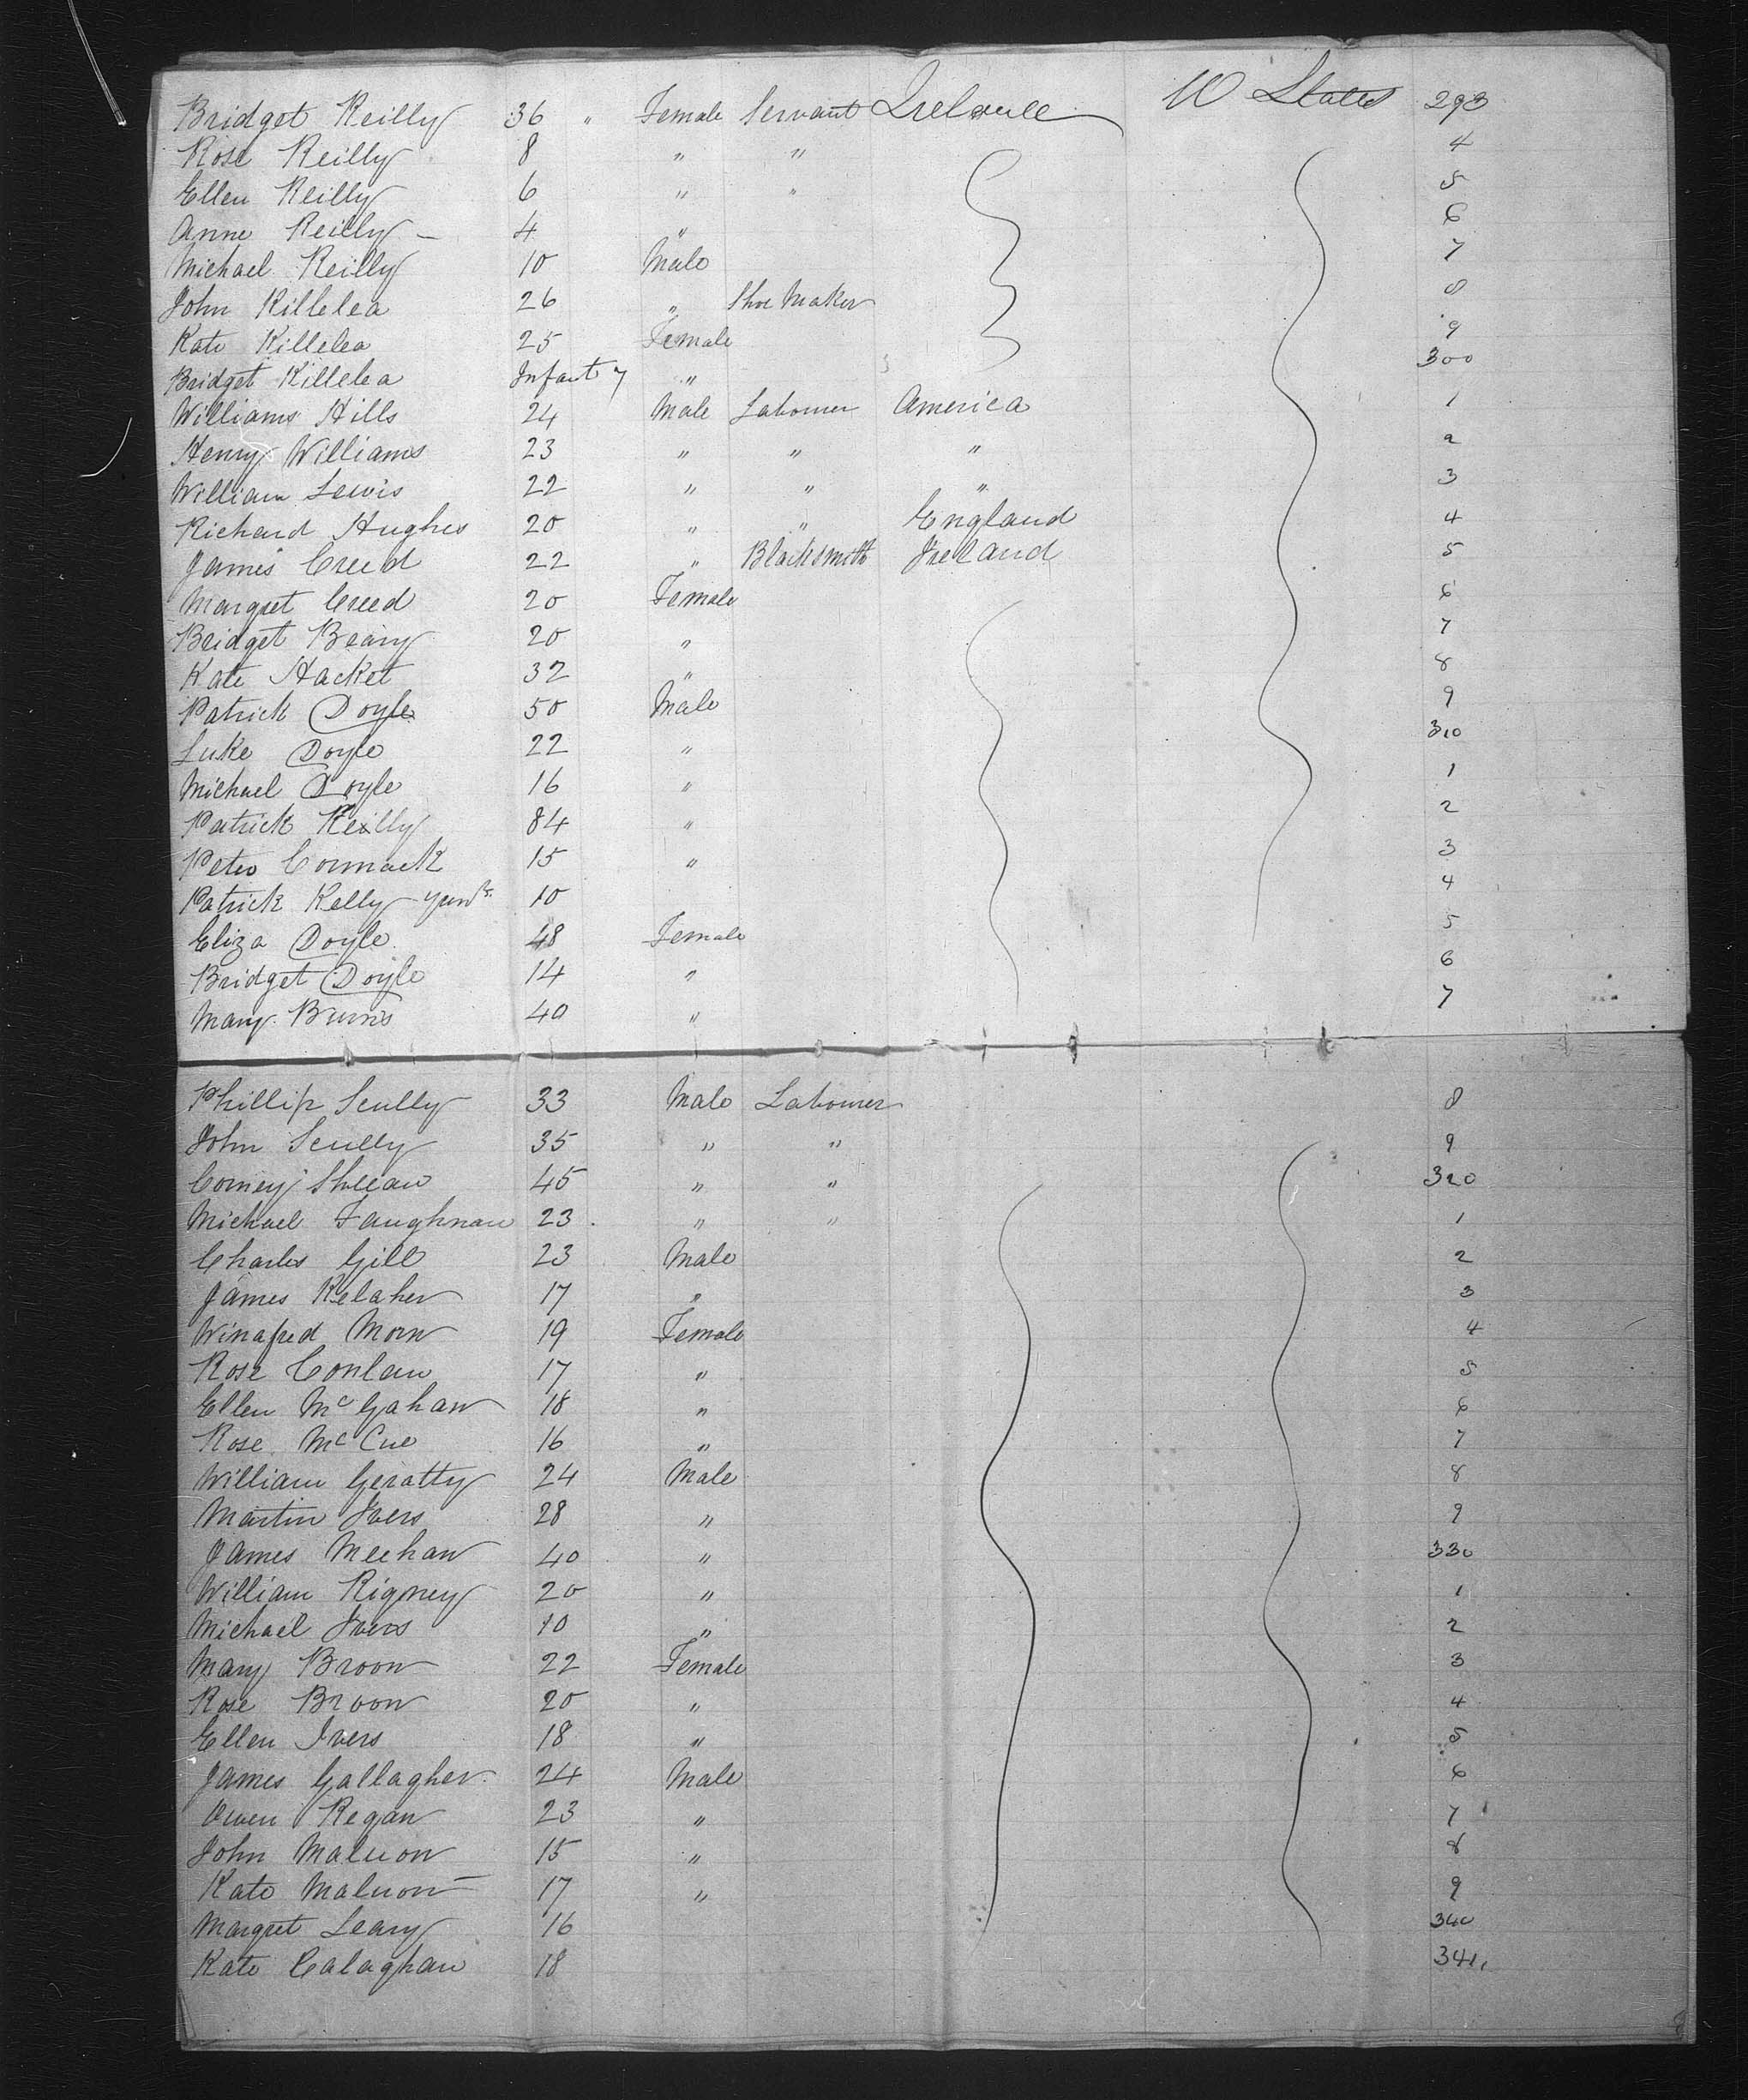 Bridget Reilly 36 " Female Servant Ireland U States 293
Rose Reilly 8 " " 4
Ellen Reilly 6 " " 5
Anne Reilly 4 " 6
Michael Reilly 10 Male 7
John Killelea 26 " Shoe Maker 8
Kate Killelea 25 Female 9
Bridget Killelea Infant 7 " 300
Williams Hills 24 Male Labourer America 1
Henry Williams 23 " " " 2
William Lewis 22 " " " 3
Richard Hughes 20 " " England 4
James Creed 22 " Blacksmith Ireland 5
Margret Creed 20 Female 6
Bridget Beary 20 " 7
Kate Hacket 32 " 8
Patrick Doyle 50 Male 9
Luke Doyle 22 " 310
Michael Doyle 16 " 1
Patrick Reilly 84 " 2
Peter Cormack 15 " 3
Patrick Kelly 10 4
Eliza Doyle 48 Female 5
Bridget Doyle 14 " 6
Mary Burns 40 " 7
Phillip Scully 33 Male Labourer 8
John Scully 35 " " 9
Corney Sheean 45 " " 320
Michael Faughnan 23 " " 1
Charles Gill 23 Male 2
James Kelaher 17 " 3
Winafred Morn 19 Female 4
Rose Conlan 17 " 5
Ellen McGahan 18 " 6
Rose McCue 16 " 7
William Geratty 24 Male 8
Martin Ivers 28 " 9
James Meehan 40 " 330
William Rigney 20 " 1
Michael Ivers 10 " 2
Mary Broon 22 Female 3
Rose Broon 20 " 4
Ellen Ivers 18 " 5
James Gallagher 24 Male 6
Owen Regan 23 " 7
John Maluon 15 " 8
Kate Maluon 17 " 9
Margret Leary 16 340
Kate Calaghan 18 341